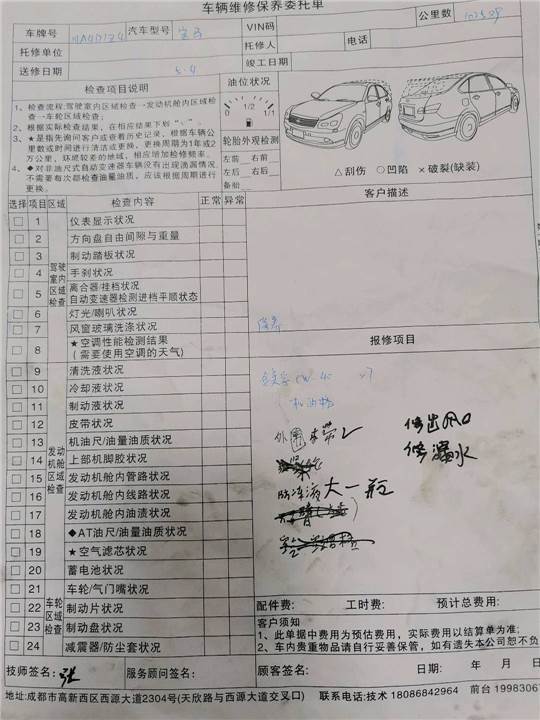 车辆维修保养委托单
车牌号 汽车型号 宝马 VIN码 公里数
托修单位 托修人 电话
送修日期 5.4 竣工日期
检查项目说明 油位状况
1、检查流程:驾驶室内区域检查→发动机舱内区域检查→车轮区域检查;
2、根据实际检查结果,在相应结果下划“√”。
3、★是指先询问客户或查看历史记录,根据车辆公里数或时间进行清洁或更换,更换周期为1年或2万公里,环境较差的地域,相应增加检修频率。
4、◆对非油尺式自动变速器车辆没有出现渗漏情况,不需要每次都检查油量油质,应该根据周期进行更换。
0 1/2 1/1
轮胎外观检测
左前 右前
左后 右后
备胎
△刮伤 ○凹陷 ×破裂(缺装)
选择 项目 区域 检查内容 正常 异常 客户描述
驾驶室内区域检查
1 仪表显示状况
2 方向盘自由间隙与重量
3 制动踏板状况
4 手刹状况
5 离合器/挂档状况
自动变速器检测进档平顺状态
6 灯光/喇叭状况
7 风窗玻璃洗涤状况
8 ★空调性能检测结果
(需要使用空调的天气)
发动机舱区域检查
9 清洗液状况
10 冷却液状况
11 制动液状况
12 皮带状况
13 机油尺/油量油质状况
14 上部机脚胶状况
15 发动机舱内管路状况
16 发动机舱内线路状况
17 发动机舱内油渍状况
18 ◆AT油尺/油量油质状况
19 ★空气滤芯状况
20 蓄电池状况
车轮区域检查
21 车轮/气门嘴状况
22 制动片状况
23 制动盘状况
24 减震器/防尘套状况
保养
报修项目
机油格
外围皮带
防冻液大一瓶
修出风口
修漏水
配件费: 工时费: 预计总费用:
客户须知
1、此单据中费用为预估费用,实际费用以结算单为准;
2、车内贵重物品请自行妥善保管,如有遗失本公司恕不负
技师签名: 张 服务顾问签名: 顾客签名: 日期: 年 月 日
地址:成都市高新西区西源大道2304号(天欣路与西源大道交叉口) 联系电话:技术 18086842964 前台 1998306